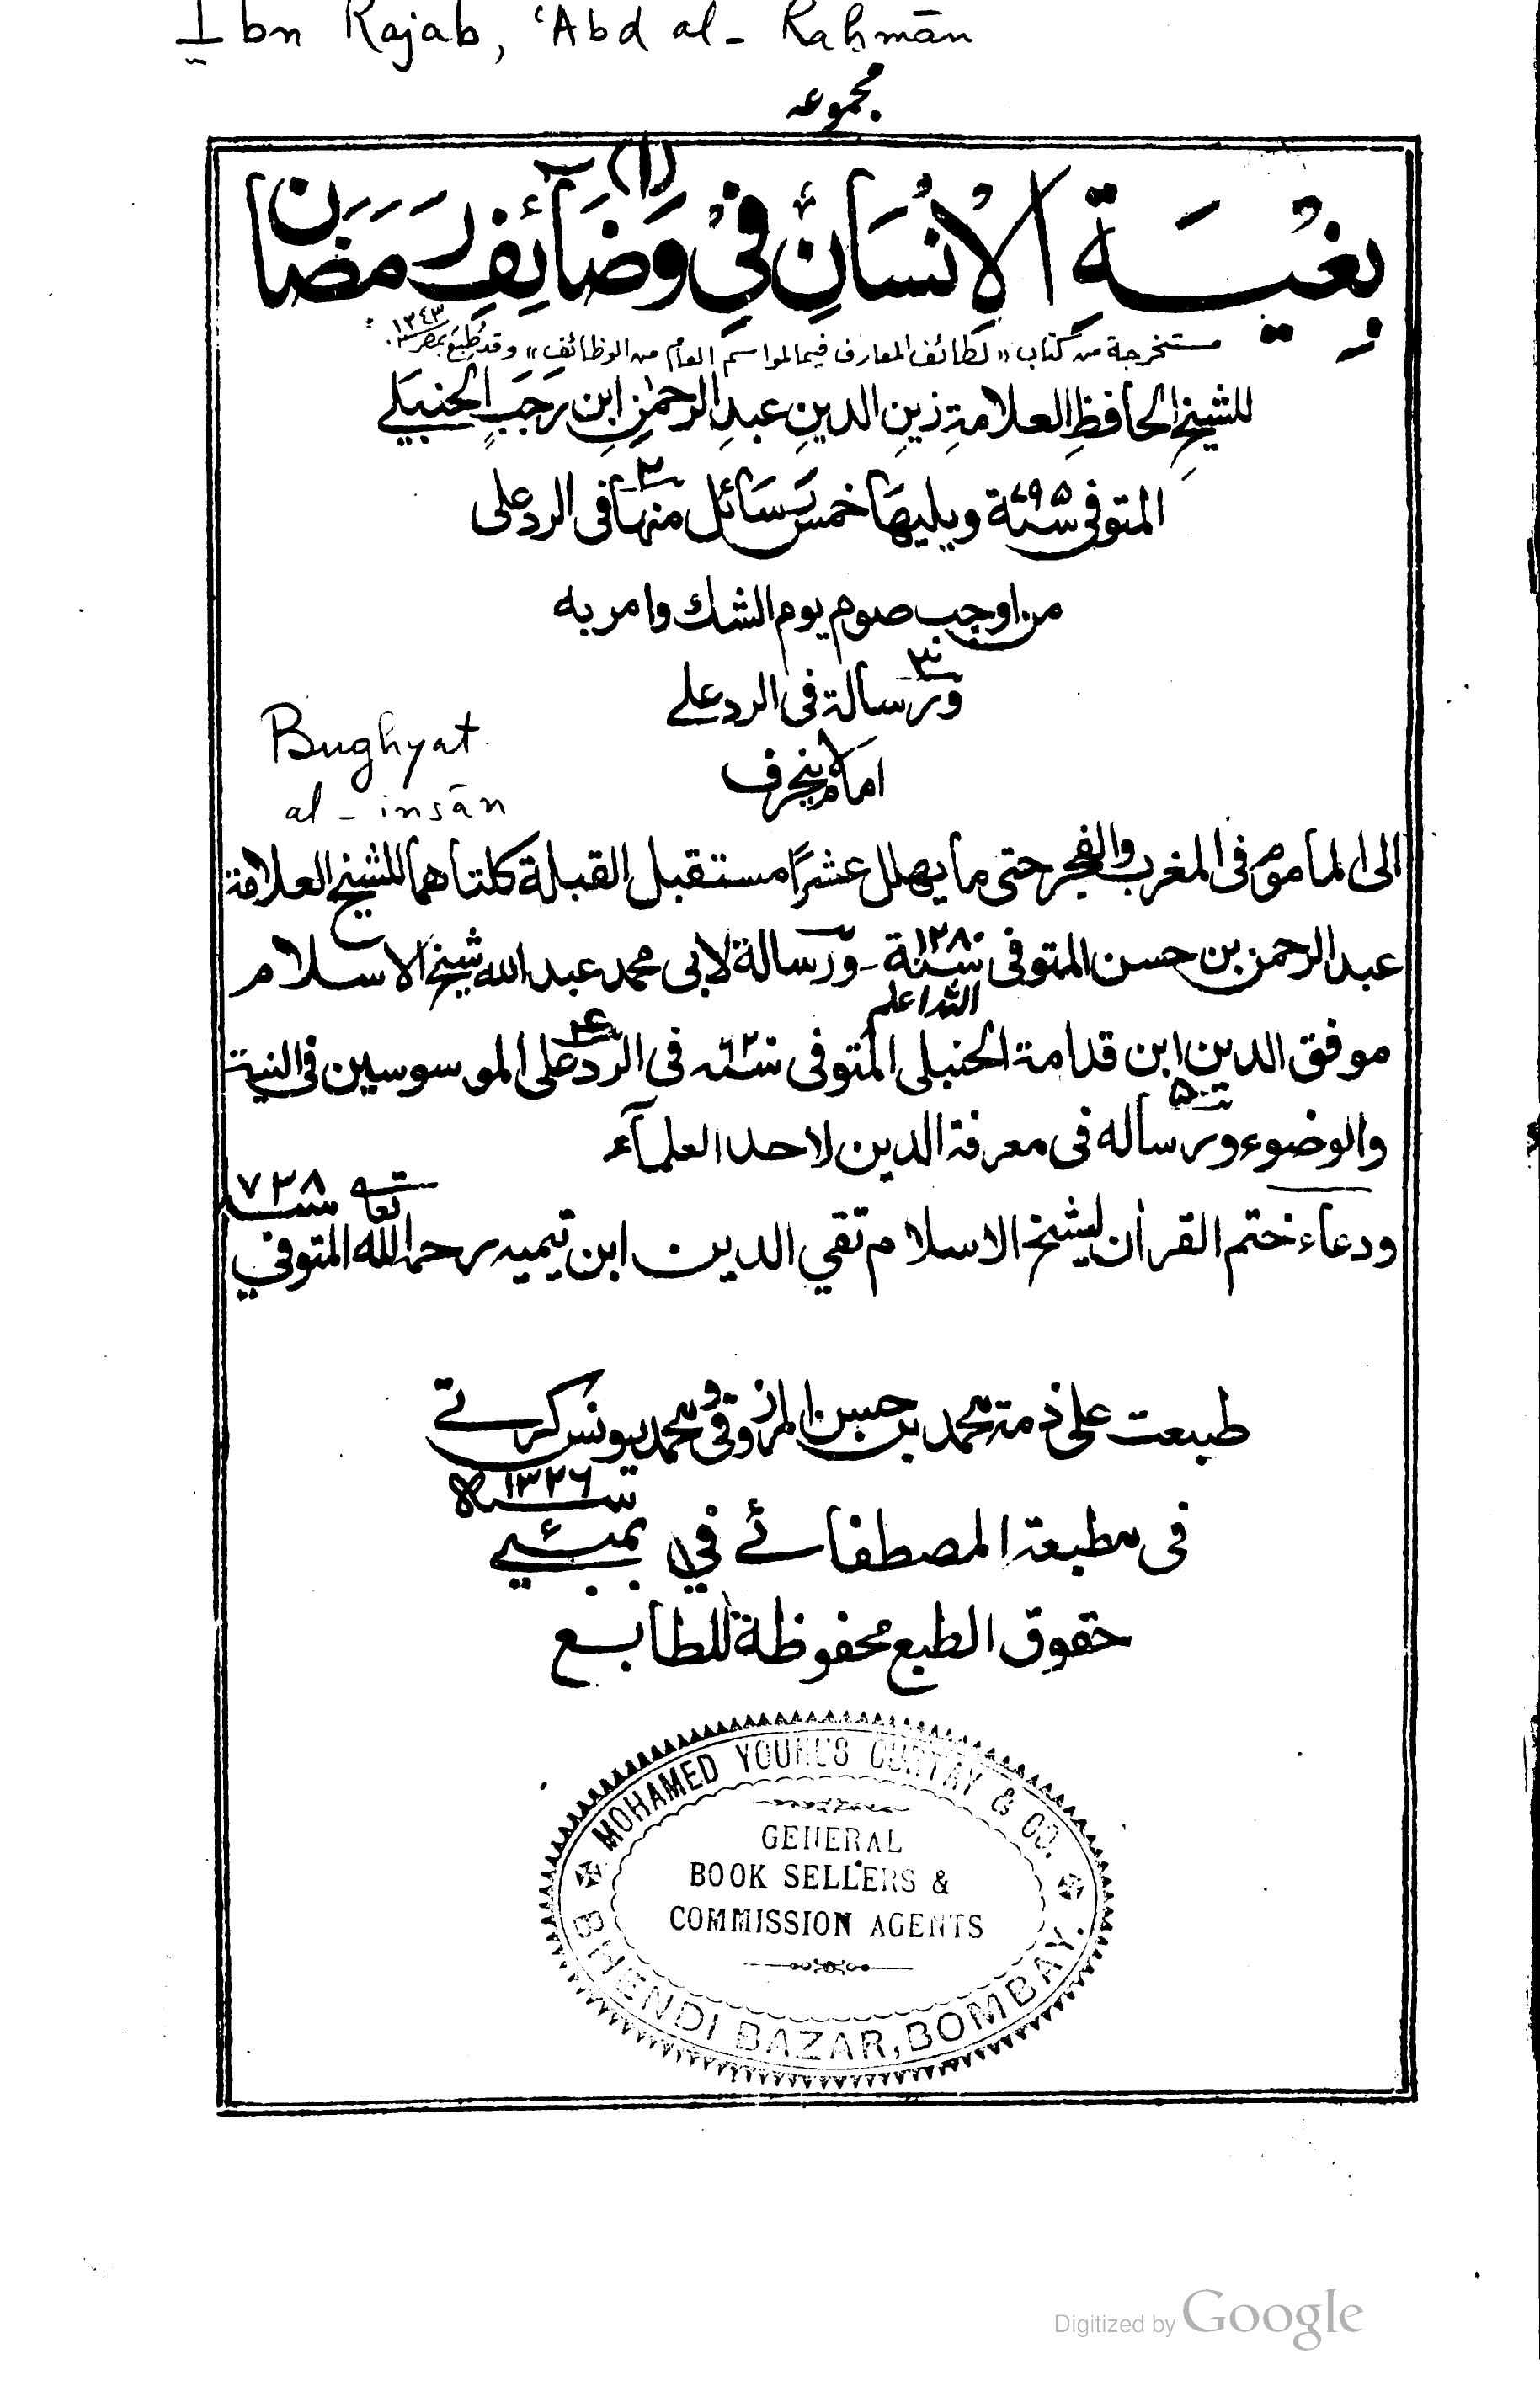 Ibn Rajab, ʿAbd al-Raḥmān
مجموعه
(١)
بغية الانسان في وضائف رمضان
مستخرجة من كتاب «لطائف المعارف فيما لمواسم العام من الوظائف» وقد طبع بمصر ١٣٤٣
للشيخ الحافظ العلامة زين الدين عبد الرحمن ابن رجب الحنبلي
المتوفى سنة ٧٩٥ ويليها خمس رسائل منها فى الرد على
من اوجب صوم يوم الشك وامر به
٣
ورسالة فى الرد على
امام ينحرف
Bughyat
al-insān
الى الماموم فى المغرب والفجر حتى ما يهلل عشرًا مستقبل القبلة كلتاهما للشيخ العلامة
عبد الرحمن بن حسن المتوفى سنة ١٢٨٠ - ورسالة لابى محمد عبد الله شيخ الاسلام
الله اعلم
موفق الدين ابن قدامة الحنبلى المتوفى سنة ٦٢٠ فى الرد على الموسوسين فى النية
والوضوء ورساله فى معرفة الدين لاحد العلمآء
ودعاء ختم القرآن لشيخ الاسلام تقي الدين ابن تيميه رحمه الله تعا المتوفي سنة ٧٢٨
طبعت على ذمة محمد بن حسين المرزوقى ومحمد يونس كرتے
سنة ١٣٢٦ ھ
فى مطبعة المصطفائے في بمبئي
حقوق الطبع محفوظة للطابع
MOHAMED YOUNUS CURTAY & CO.
GENERAL
BOOK SELLERS &
COMMISSION AGENTS
BHENDI BAZAR, BOMBAY.
Digitized by Google